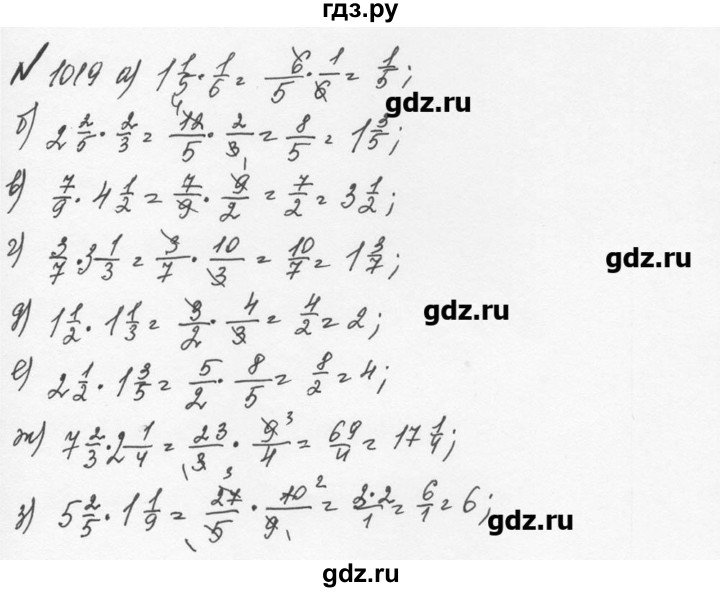 гдз.ру
N 1019 а) 1 1/5 · 1/6 = 6/5 · 1/6 = 1/5;
гдз.ру
б) 2 2/5 · 2/3 = 12/5 · 2/3 = 8/5 = 1 3/5;
в) 7/9 · 4 1/2 = 7/9 · 9/2 = 7/2 = 3 1/2;
г) 3/7 · 3 1/3 = 3/7 · 10/3 = 10/7 = 1 3/7;
гдз.ру
д) 1 1/2 · 1 1/3 = 3/2 · 4/3 = 4/2 = 2;
гдз.ру
е) 2 1/2 · 1 3/5 = 5/2 · 8/5 = 8/2 = 4;
ж) 7 2/3 · 2 1/4 = 23/3 · 9/4 = 69/4 = 17 1/4;
з) 5 2/5 · 1 1/9 = 27/5 · 10/9 = 3·2/1 = 6/1 = 6;
гдз.ру
гдз.ру